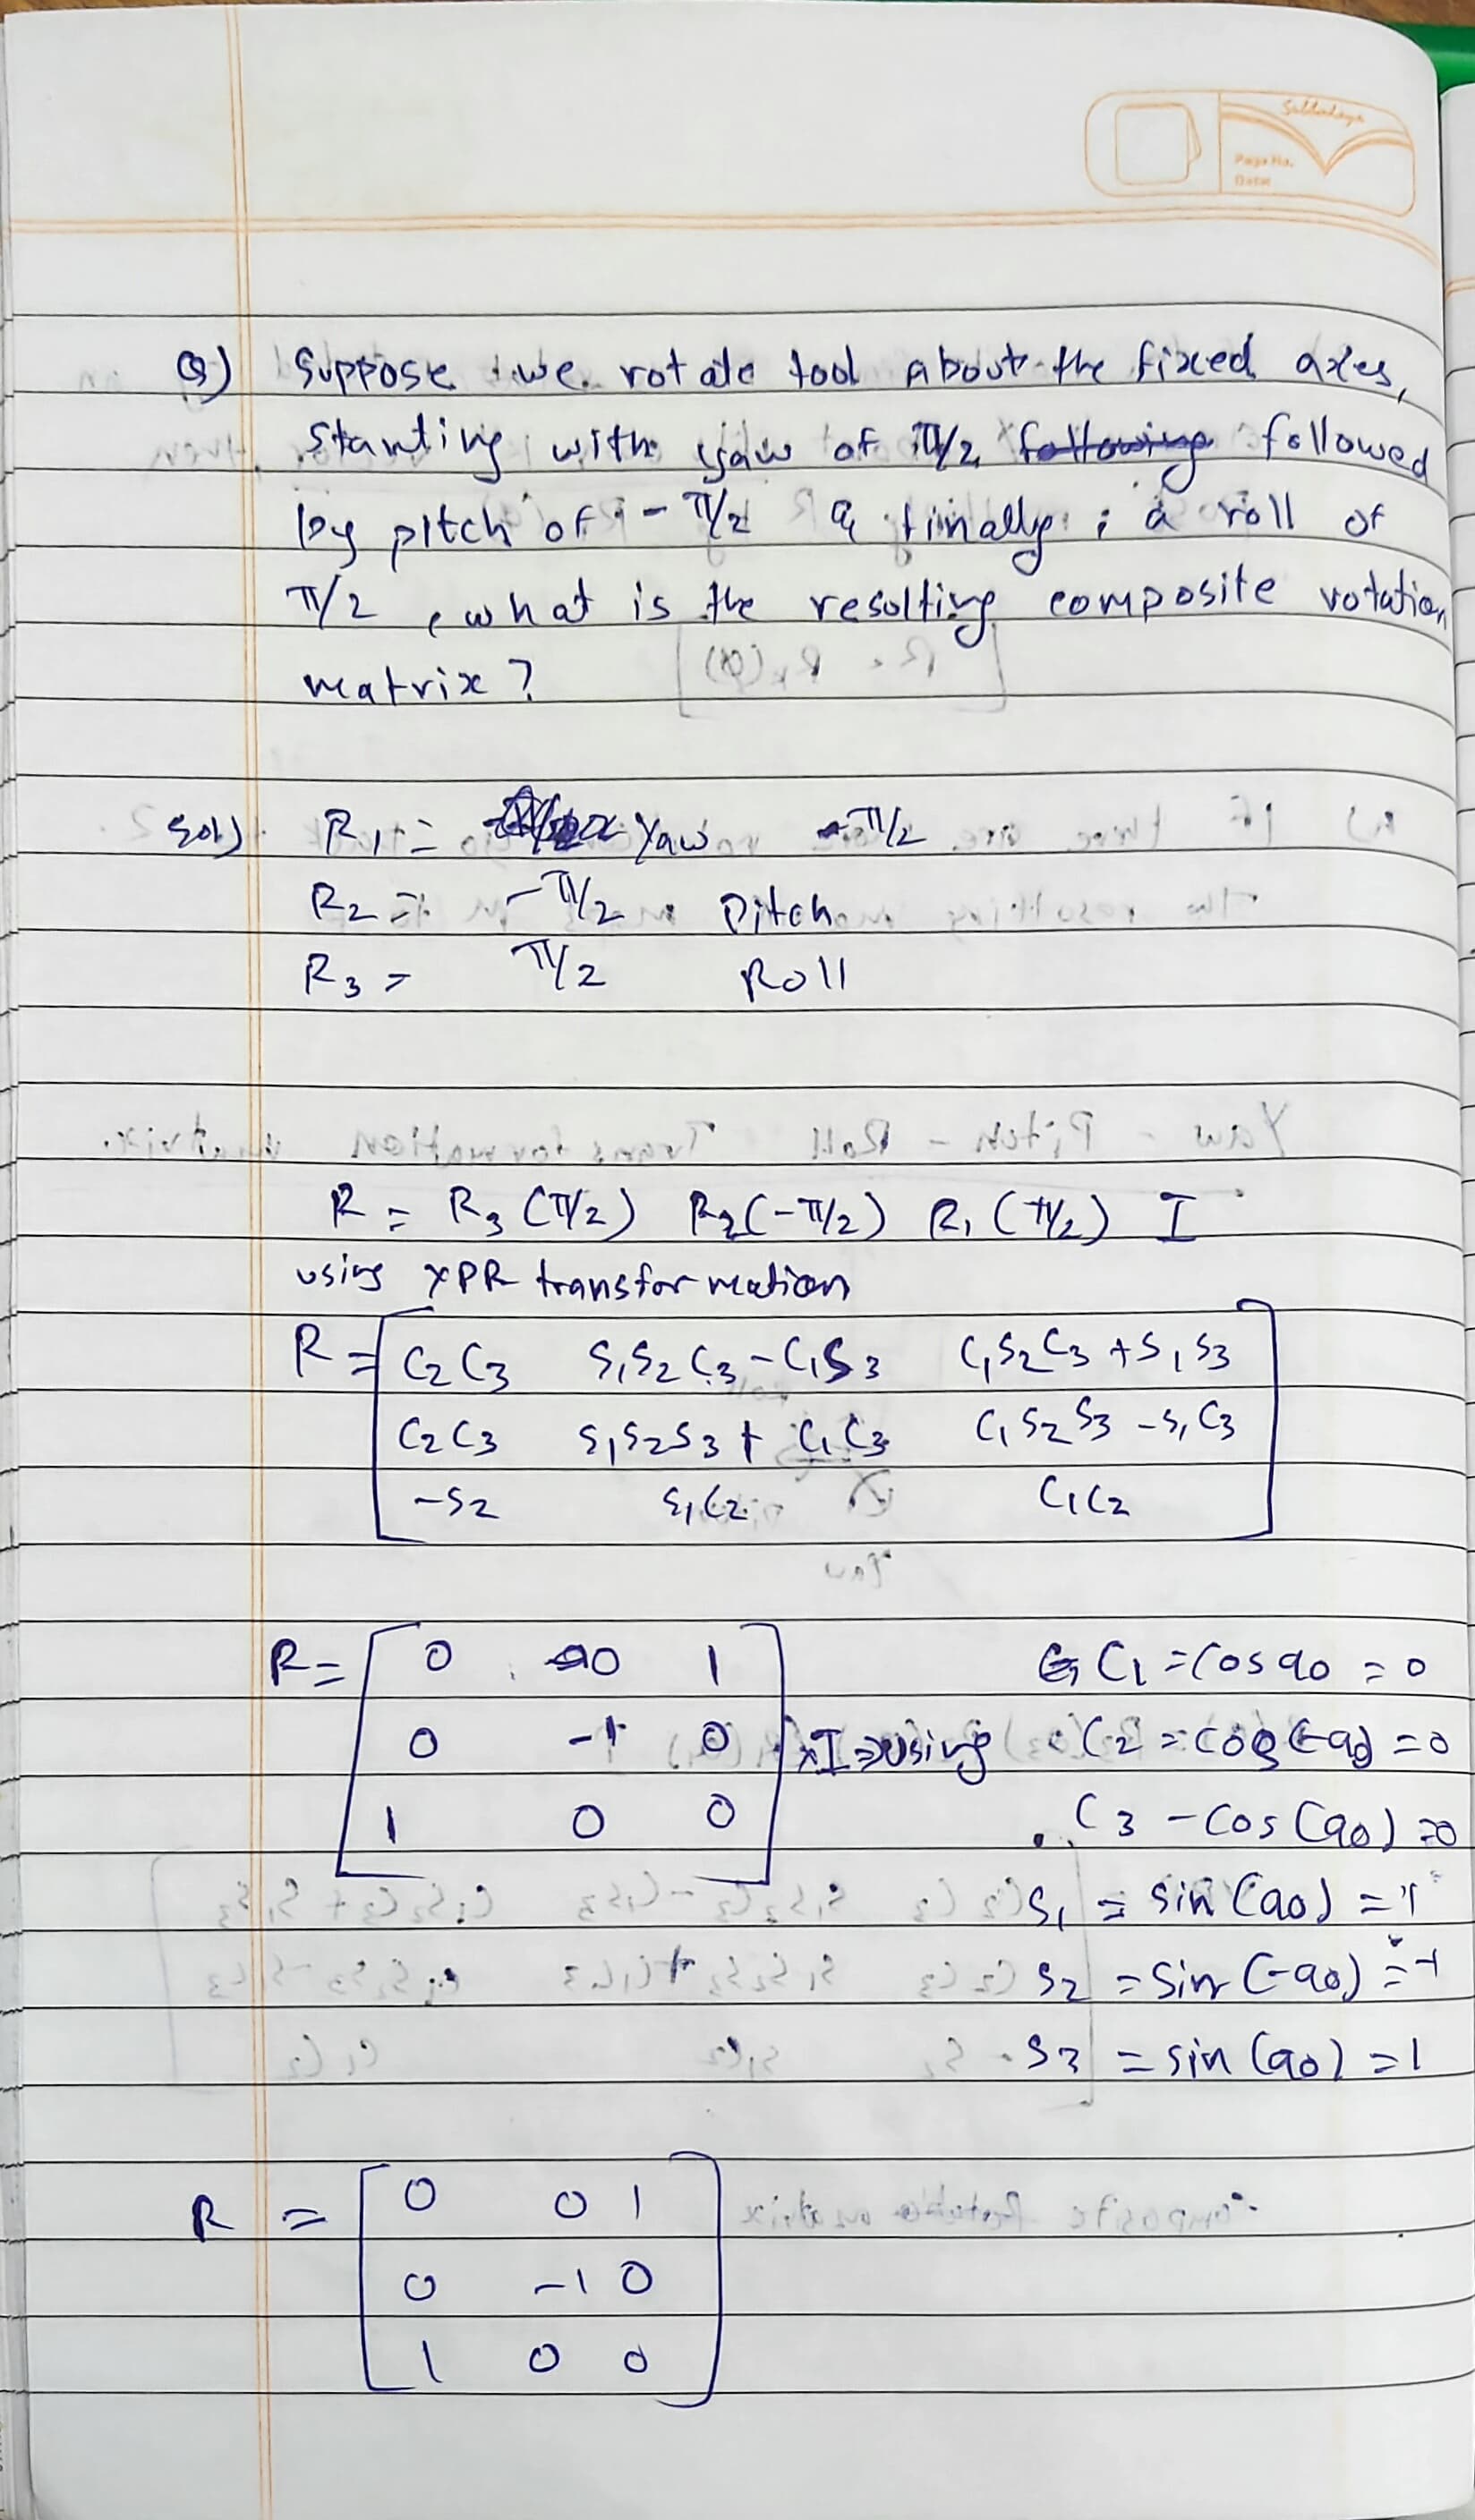 Page No.
Date
Q) Suppose we rotate tool About the fixed axes,
starting with yaw of π/2 following followed
by pitch of - π/2 & finally, a roll of
π/2, what is the resulting composite rotation
matrix?
Sol) R1 = Yaw π/2
R2 = -π/2 pitch
R3 = π/2 Roll
R = R3 (π/2) R2 (-π/2) R1 (π/2) I
using YPR transformation
R = [ C2 C3 S1S2 C3 - C1S3 C1S2C3 + S1S3
C2 C3 S1S2S3 + C1C3 C1 S2 S3 - S1 C3
-S2 S1C2 C1C2 ]
R = [ 0 0 1 C1 = Cos 90 = 0
0 -1 0 xI => using C2 = cos(-90) = 0
1 0 0 ] C3 - Cos (90) = 0
S1 = sin (90) = 1
S2 = Sin (-90) = -1
S3 = sin (90) = 1
R = [ 0 0 1
0 -1 0
1 0 0 ]